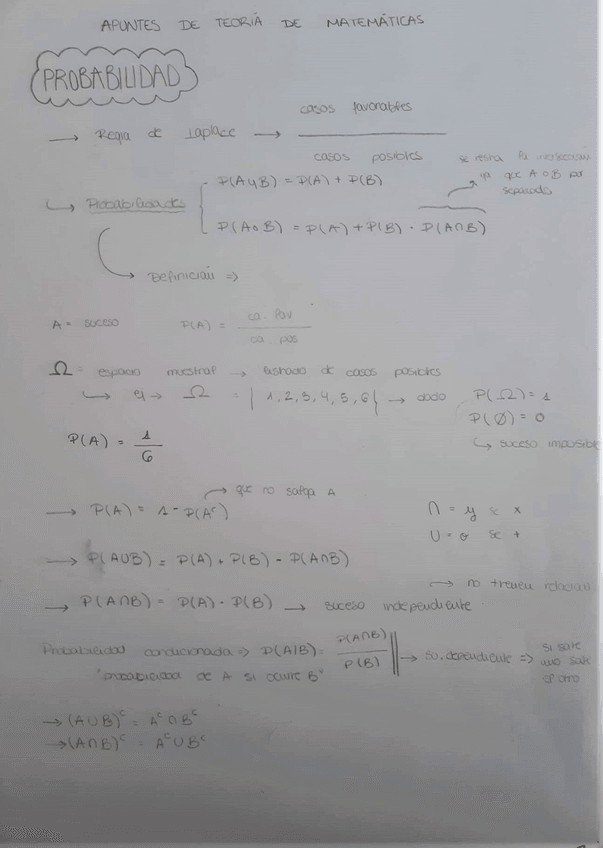 APUNTES DE TEORÍA DE MATEMÁTICAS
PROBABILIDAD
→ Regla de Laplace → casos favorables
casos posibles
se resta la intersección
ya que A o B por
separado
P(A y B) = P(A) + P(B)
↳ Probabilidades
P(A o B) = P(A) + P(B) · P(A∩B)
Definición ⇒
A = suceso P(A) = ca. fav
ca pos
Ω = espacio muestral → listado de casos posibles
↳ ej → Ω = { 1, 2, 3, 4, 5, 6 } → dado P(Ω) = 1
P(∅) = 0
↳ suceso imposible
P(A) = 1
6
→ que no salga A
→ P(A) = 1 - P(Aᶜ)
∩ = y se x
U = o se +
→ P(A∪B) = P(A) + P(B) - P(A∩B)
→ no tienen relación
→ P(A∩B) = P(A) · P(B) → suceso independiente
Probabilidad condicionada ⇒ P(A/B) = P(A∩B)
P(B)
→ su. dependiente ⇒ si sale
uno sale
el otro
"probabilidad de A si ocurre B"
→ (A∪B)ᶜ = Aᶜ∩Bᶜ
→ (A∩B)ᶜ = Aᶜ∪Bᶜ